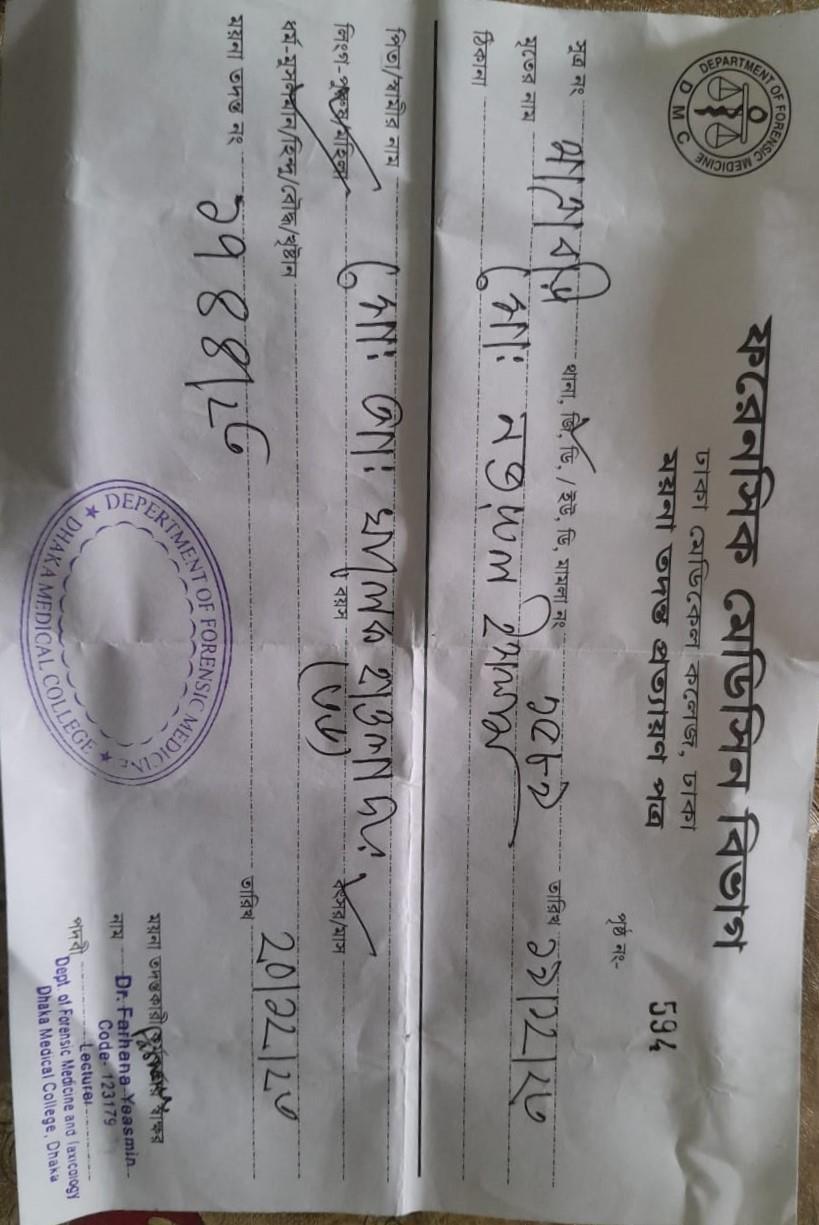 DEPARTMENT OF FORENSIC MEDICINE
D M C
ফরেনসিক মেডিসিন বিভাগ
ঢাকা মেডিকেল কলেজ, ঢাকা
ময়না তদন্ত প্রত্যায়ন পত্র
পৃষ্ঠ নং- 594
সূত্র নং থানা, জি, ডি, / ইউ, ডি, মামলা নং ১৫৮৯ তারিখ ১৯/১২/২৩
মৃতের নাম মোঃ নজমুল ইসলাম
ঠিকানা
পিতা/স্বামীর নাম মোঃ আঃ মালেক হাওলাদার
লিংগ-পুরুষ/মহিলা বয়স (৩৬) বৎসর/মাস
ধর্ম-মুসলমান/হিন্দু/বৌদ্ধ/খৃষ্টান
ময়না তদন্ত নং ১৭৪৪/২৩ তারিখ 20/১2/2৩
DEPERTMENT OF FORENSIC MEDICINE
★ DHAKA MEDICAL COLLEGE ★
ময়না তদন্তকারী স্বাক্ষর
নাম Dr. Farhana Yeasmin
Code- 123179
পদবী Lecturer
Dept. of Forensic Medicine and Taxicology
Dhaka Medical College, Dhaka